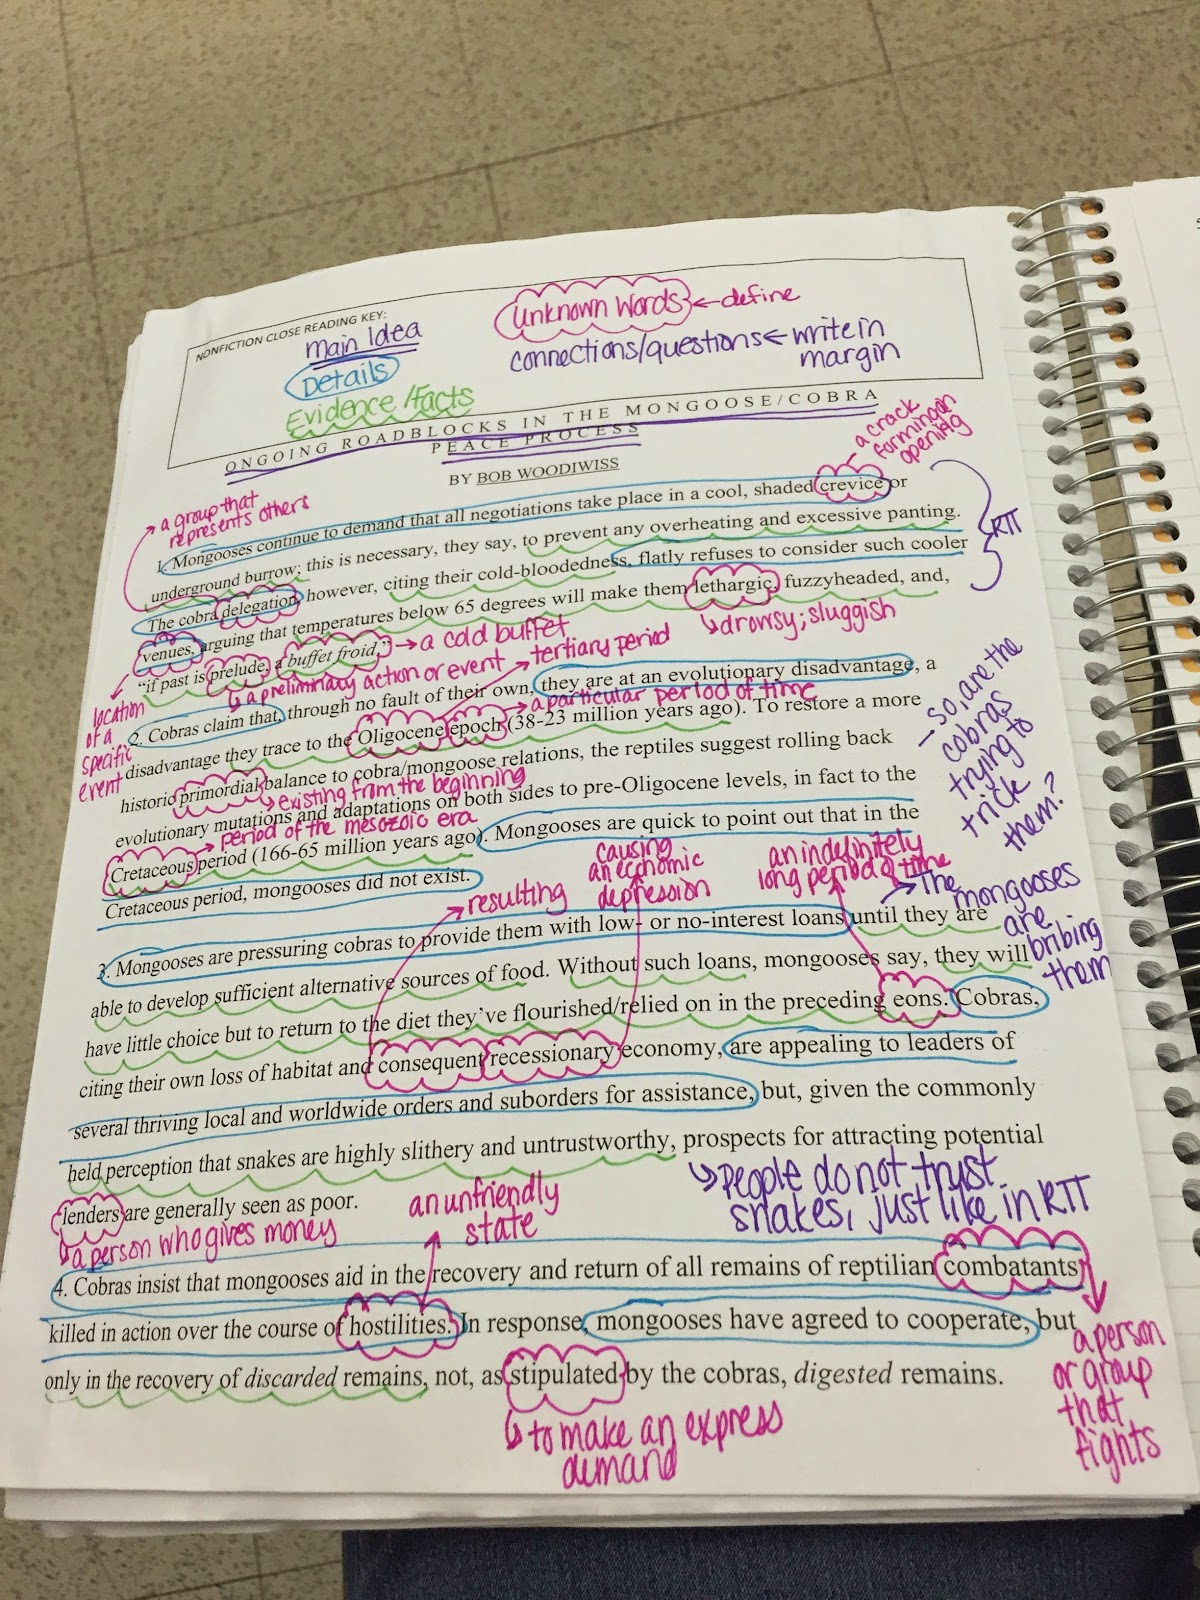 NONFICTION CLOSE READING KEY:
Main Idea
Details
Evidence/Facts
Unknown Words ← define
connections/questions ← write in
margin
ONGOING ROADBLOCKS IN THE MONGOOSE/COBRA
PEACE PROCESS
BY BOB WOODIWISS
a crack
forming an
opening
→ a group that
represents others
1. Mongooses continue to demand that all negotiations take place in a cool, shaded crevice or
underground burrow; this is necessary, they say, to prevent any overheating and excessive panting.
RTT
The cobra delegation, however, citing their cold-bloodedness, flatly refuses to consider such cooler
venues, arguing that temperatures below 65 degrees will make them lethargic, fuzzyheaded, and,
↳ drowsy; sluggish
"if past is prelude, a buffet froid," → a cold buffet
↳ a preliminary action or event
→ tertiary period
location
of a
specific
event
2. Cobras claim that, through no fault of their own, they are at an evolutionary disadvantage, a
→ a particular period of time
disadvantage they trace to the Oligocene epoch (38-23 million years ago). To restore a more
historic primordial balance to cobra/mongoose relations, the reptiles suggest rolling back
↳ existing from the beginning
evolutionary mutations and adaptations on both sides to pre-Oligocene levels, in fact to the
→ period of the mesozoic era
Cretaceous period (166-65 million years ago). Mongooses are quick to point out that in the
Cretaceous period, mongooses did not exist.
- so, are the
cobras
trying to
trick
them?
→ resulting
causing
an economic
depression
an indefinitely
long period of time
→ The
mongooses
are
bribing
them
3. Mongooses are pressuring cobras to provide them with low- or no-interest loans until they are
able to develop sufficient alternative sources of food. Without such loans, mongooses say, they will
have little choice but to return to the diet they've flourished/relied on in the preceding eons. Cobras,
citing their own loss of habitat and consequent recessionary economy, are appealing to leaders of
several thriving local and worldwide orders and suborders for assistance, but, given the commonly
held perception that snakes are highly slithery and untrustworthy, prospects for attracting potential
↳ People do not trust
snakes, just like in RTT
lenders are generally seen as poor.
↳ a person who gives money
an unfriendly
state
4. Cobras insist that mongooses aid in the recovery and return of all remains of reptilian combatants
killed in action over the course of hostilities. In response, mongooses have agreed to cooperate, but
only in the recovery of discarded remains, not, as stipulated by the cobras, digested remains.
↳ to make an express
demand
a person
or group
that
fights